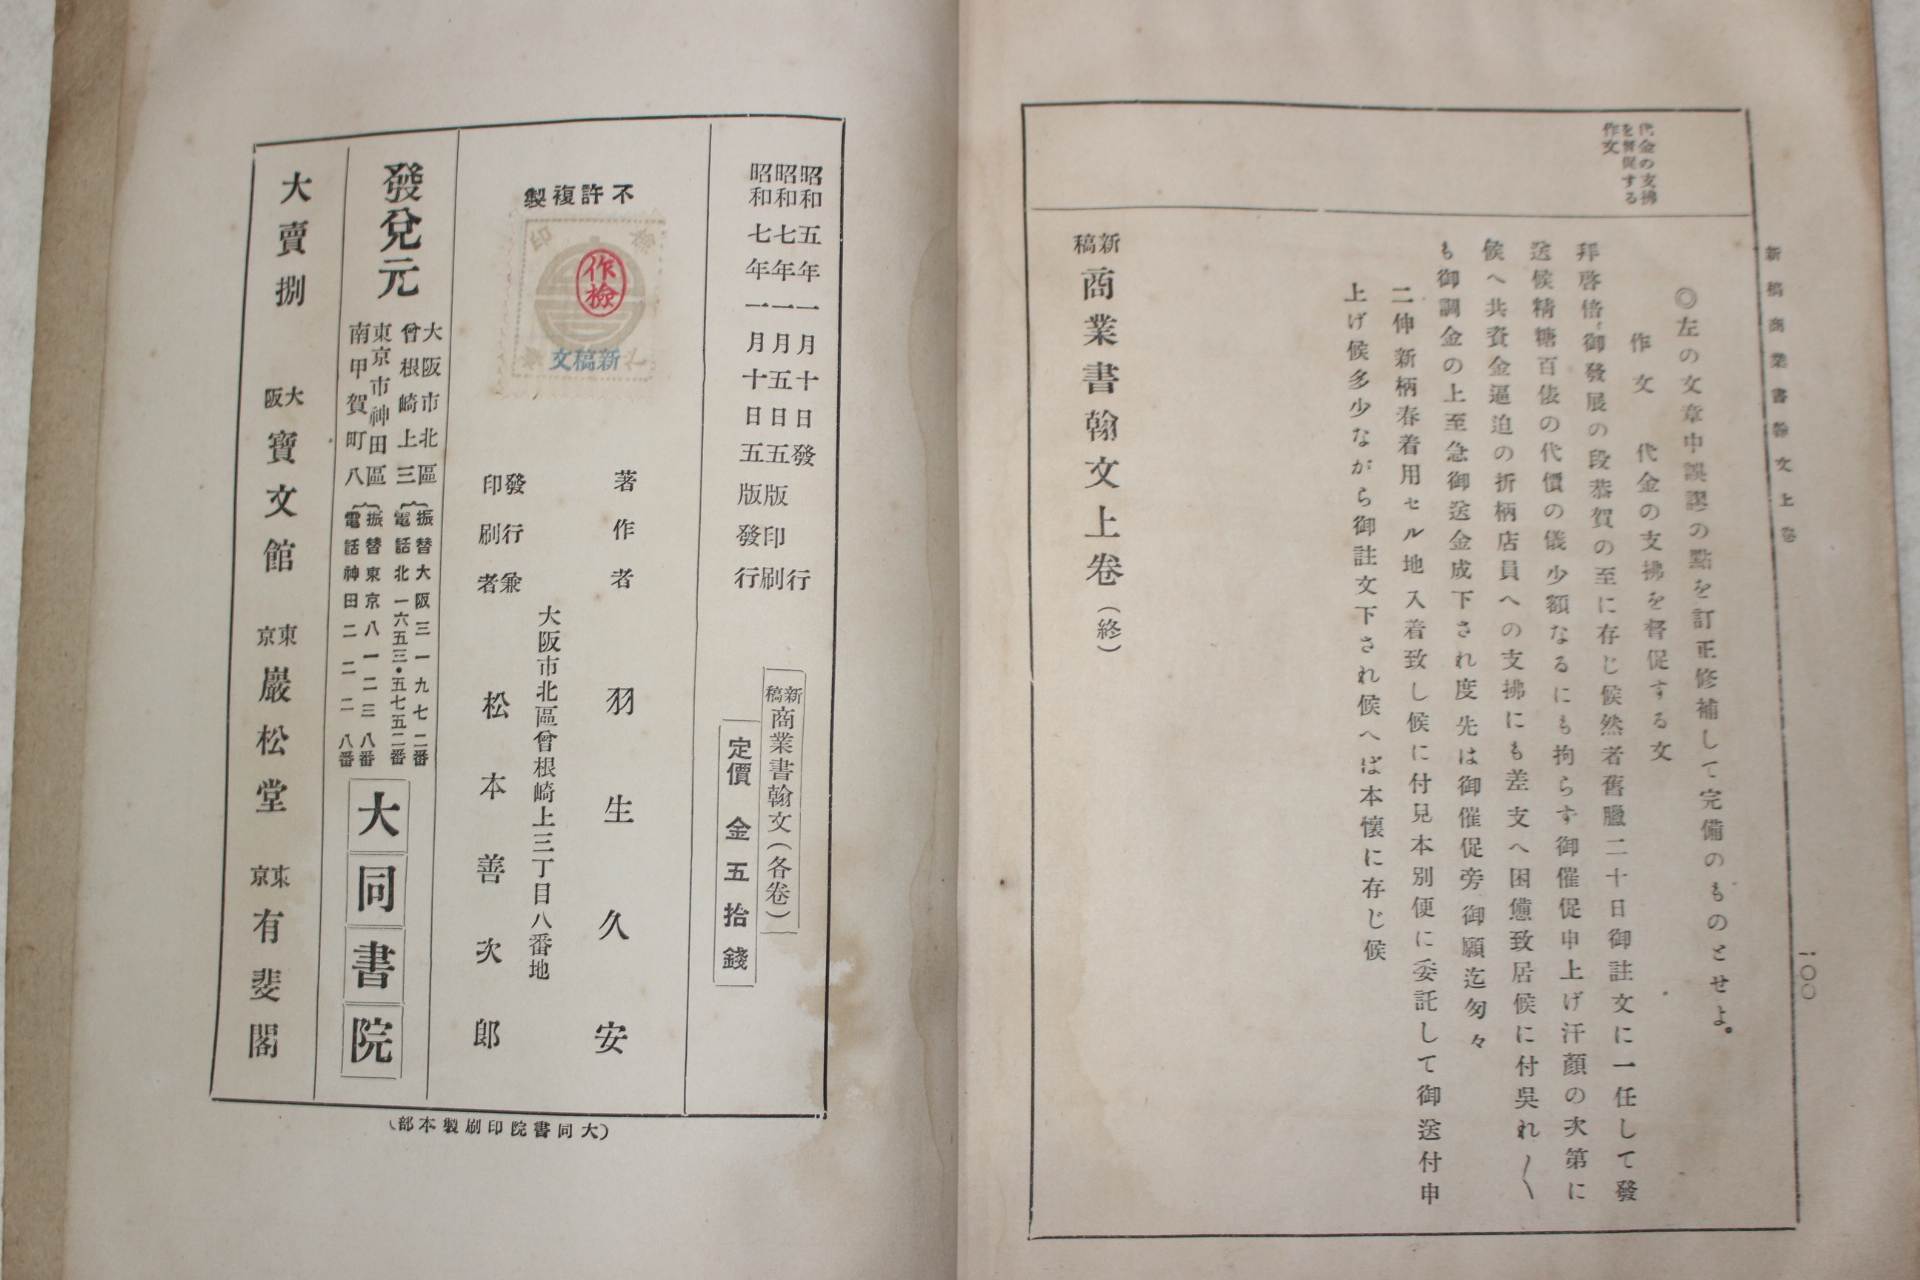 新稿商業書翰文上卷
一〇〇
代金の支拂
を督促する
作文
◎左の文章中誤謬の點を訂正修補して完備のものとせよ。
作文 代金の支拂を督促する文
拜啓倍々御發展の段恭賀の至に存じ候然者舊臘二十日御註文に一任して發
送候精糖百俵の代價の儀少額なるにも拘らす御催促申上げ汗顏の次第に
候へ共資金逼迫の折柄店員への支拂にも差支へ困憊致居候に付吳れ〱
も御調金の上至急御送金成下され度先は御催促旁御願迄匆々
二伸新柄春着用セル地入着致し候に付見本別便に委託して御送付申
上げ候多少ながら御註文下され候へば本懷に存じ候
新稿商業書翰文上卷(終)
昭和五年一月十日發行
昭和七年一月五日五版印刷
昭和七年一月十日五版發行
新稿商業書翰文(各卷)
定價 金五拾錢
不許複製
作檢
新稿文
著作者 羽生久安
大阪市北區曾根崎上三丁目八番地
發行兼
印刷者 松本善次郎
發兌元
大阪市北區
曾根崎上三
振替大阪三一九七二番
電話北一六五三・五七五二番
東京市神田區
南甲賀町八
振替東京八一二三八番
電話神田二二二八番
大同書院
大賣捌
大阪 寶文館
東京 巖松堂
東京 有斐閣
(大同書院印刷製本部)